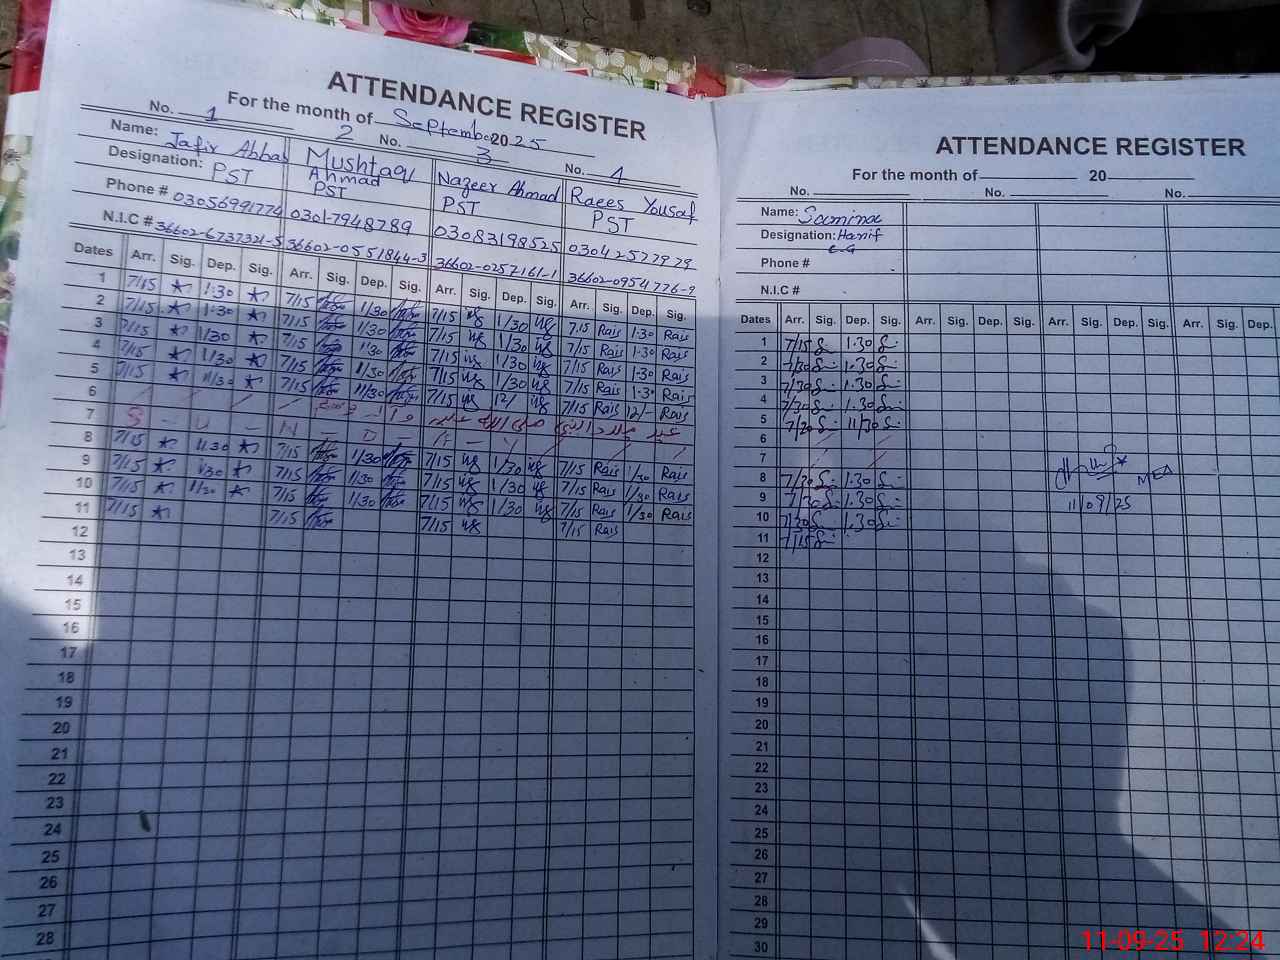 ATTENDANCE REGISTER
For the month of September 2025
No. 1 2 No. 3 No. 4
Name: Jafir Abbas Mushtaq Ahmad Nazeer Ahmad Raees Yousaf
Designation: PST PST PST PST
Phone # 03056991774 0301-7948789 03083198525 03042577979
N.I.C # 36602-6737321-5 36602-0551844-3 36602-0257161-1 36602-0954776-9
Dates Arr. Sig. Dep. Sig. Arr. Sig. Dep. Sig. Arr. Sig. Dep. Sig. Arr. Sig. Dep. Sig.
1 7/15 1.30 7/15 1/30 7/15 1/30 7.15 Rais 1.30 Rais
2 7/15 1.30 7/15 1/30 7/15 1/30 7/15 Rais 1.30 Rais
3 7/15 1/30 7/15 1/30 7/15 1/30 7/15 Rais 1.30 Rais
4 7/15 1/30 7/15 11/30 7/15 1/30 7/15 Rais 1.30 Rais
5 7/15 11/30 7/15 11/30 7/15 12/ 7/15 Rais 12/- Rais
6
7 S - U - N - D - A - Y
8 7/15 1.30 7/15 1/30 7/15 1/30 7/15 Rais 1/30 Rais
9 7/15 1/30 7/15 1/30 7/15 1/30 7/15 Rais 1/30 Rais
10 7/15 1/30 7/15 1/30 7/15 1/30 7/15 Rais 1/30 Rais
11 7/15 7/15 7/15 7/15 Rais
12
13
14
15
16
17
18
19
20
21
22
23
24
25
26
27
28
ATTENDANCE REGISTER
For the month of 20
No. No. No.
Name: Samina
Designation: Hanif
C-G
Phone #
N.I.C #
Dates Arr. Sig. Dep. Sig. Arr. Sig. Dep. Sig. Arr. Sig. Dep. Sig. Arr. Sig. Dep.
1 7/15 1.30
2 7/30 1.30
3 7/30 1.30
4 7/30 1.30
5 7/30 11/30
6
7
8 7/30 1.30 MEA
9 7/30 1.30 11/09/25
10 7/30 1.30
11 7/15
12
13
14
15
16
17
18
19
20
21
22
23
24
25
26
27
28
29
30
11-09-25 12:24